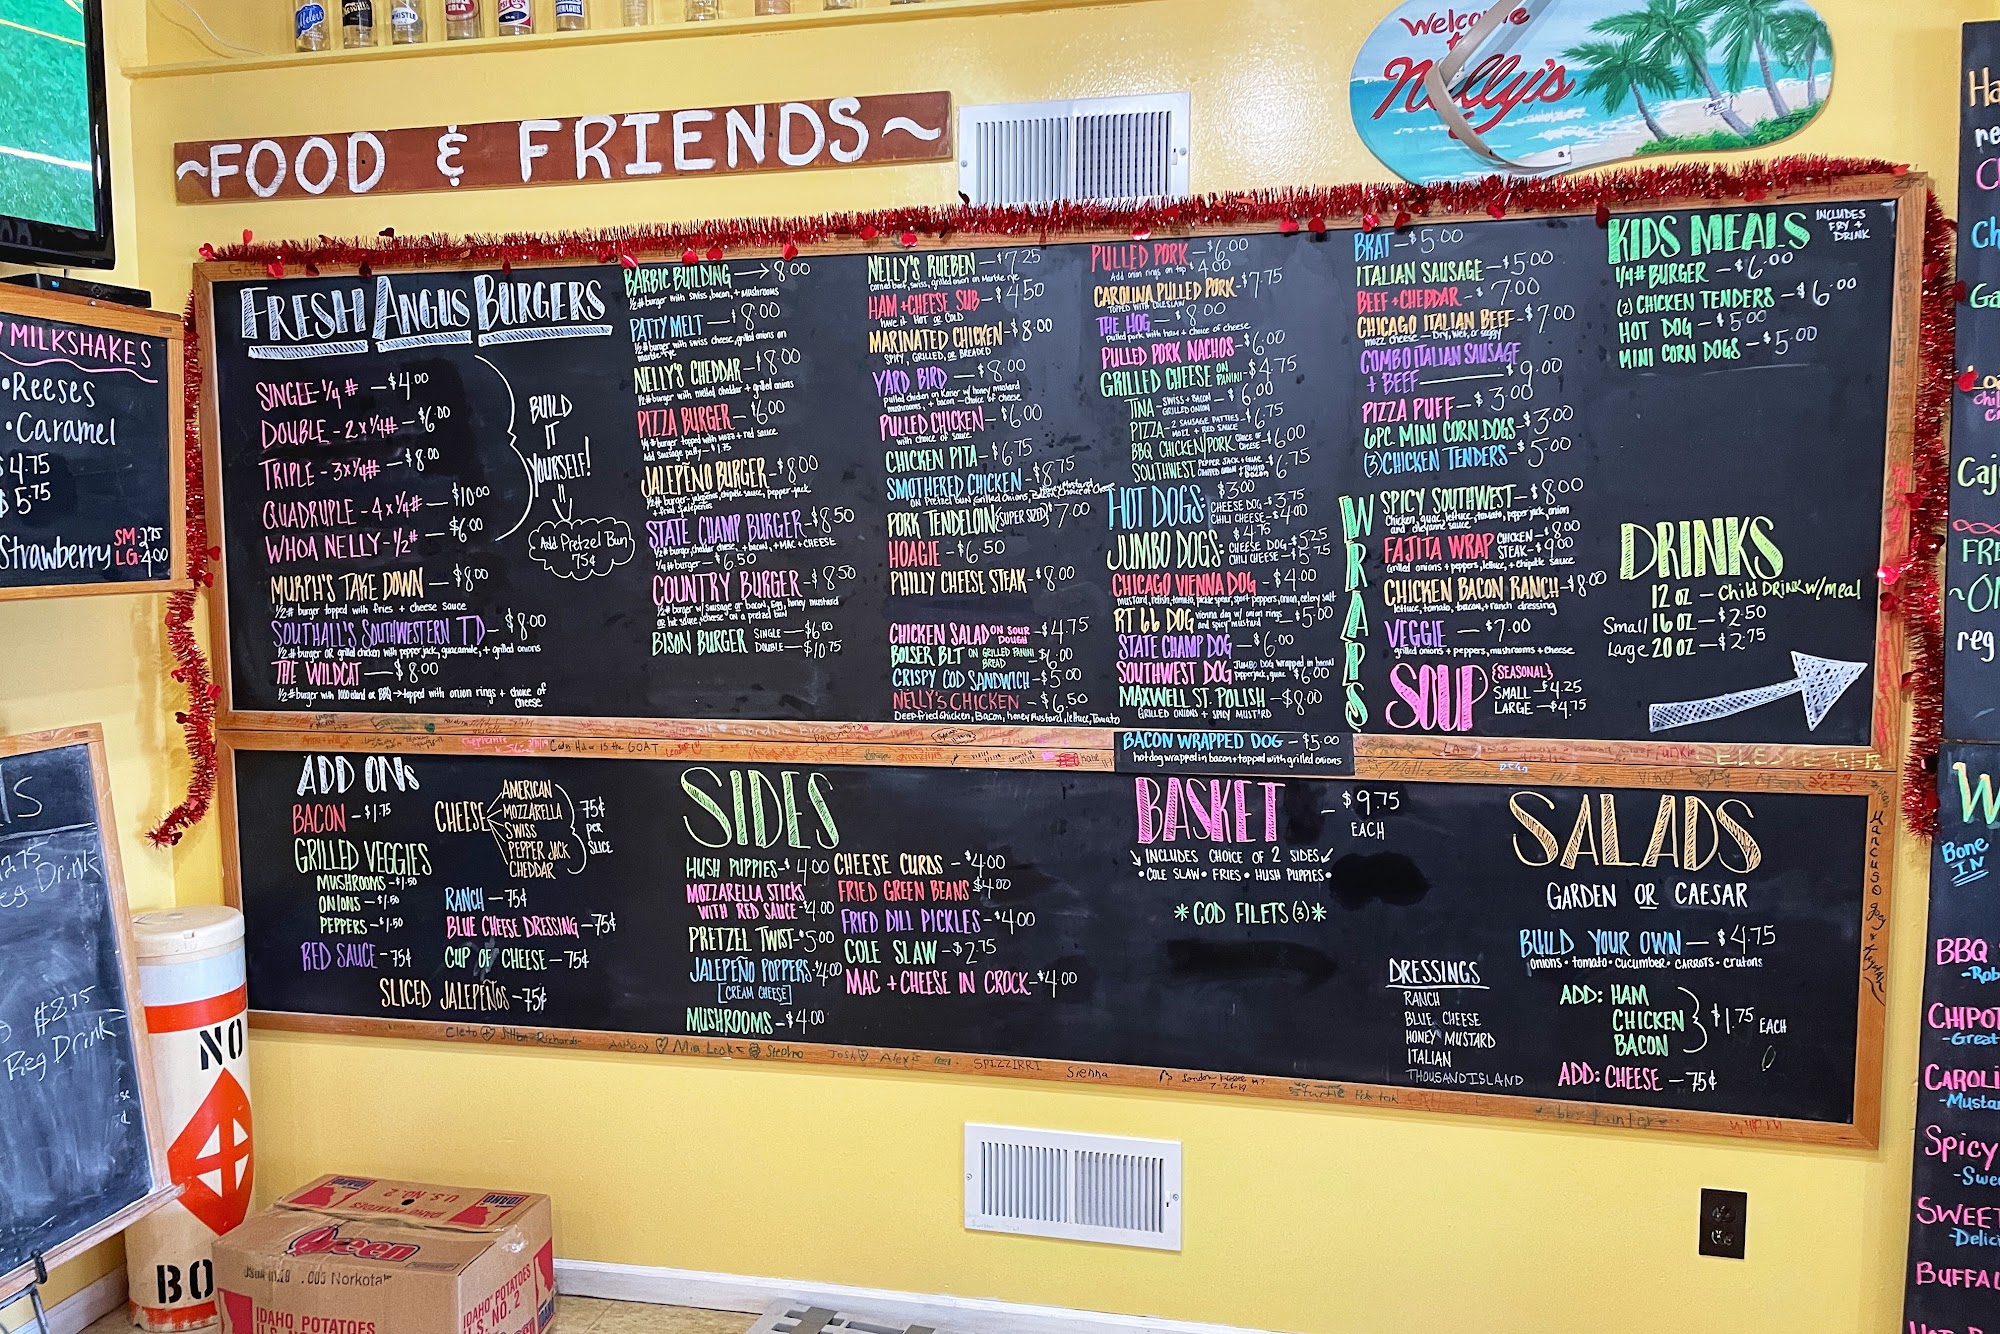 ~FOOD & FRIENDS~
Welcome
to
Nelly's
MILKSHAKES
•Reeses
•Caramel
$4.75
$5.75
Strawberry
SM-
LG-4.00
FRESH ANGUS BURGERS
SINGLE-1/4# —$4.00
DOUBLE-2x1/4# —$6.00
TRIPLE-3x1/4# —$8.00
QUADRUPLE-4x1/4# —$10.00
WHOA NELLY-1/2# —$6.00
BUILD
IT
YOURSELF!
Add Pretzel Bun
75¢
MURPH'S TAKE DOWN —$8.00
1/2# burger topped with fries + cheese sauce
SOUTHALL'S SOUTHWESTERN TD —$8.00
1/2# burger OR grilled chicken with pepperjack, guacamole, + grilled onions
THE WILDCAT —$8.00
1/2# burger with 1000 island or BBQ → topped with onion rings + choice of
cheese
BARBIC BUILDING → 8.00
1/2# burger with swiss, bacon, + mushrooms
PATTY MELT —$8.00
1/2# burger with swiss cheese, grilled onions on
marble rye
NELLY'S CHEDDAR —$8.00
1/2# burger with melted cheddar + grilled onions
PIZZA BURGER —$6.00
1/4# burger topped with mozz + red sauce
Add Sausage patty —$1.75
JALEPEÑO BURGER —$8.00
1/2# burger - jalepeños, chipotle sauce, pepper jack
+ fried jalepeños
STATE CHAMP BURGER —$8.50
1/2# burger, cheddar cheese, + bacon, + MAC + CHEESE
1/4# burger —$6.50
COUNTRY BURGER —$8.50
1/2# burger w/ sausage or bacon, Egg, honey mustard
or hot sauce, cheese on a pretzel bun
BISON BURGER SINGLE —$6.00
DOUBLE —$10.75
NELLY'S RUEBEN —$7.25
corned beef, swiss, grilled onion on Marble rye
HAM + CHEESE SUB —$4.50
have it HOT or COLD
MARINATED CHICKEN —$8.00
SPICY, GRILLED, OR BREADED
YARD BIRD —$8.00
pulled chicken on Kaiser w/ honey mustard
mushrooms, + bacon - choice of cheese
PULLED CHICKEN —$6.00
with choice of sauce
CHICKEN PITA —$6.75
SMOTHERED CHICKEN —$8.75
on Pretzel bun Grilled Onions, Honey Mustard, Bacon, Choice of Cheese
PORK TENDELOIN {SUPER SIZED} $7.00
HOAGIE —$6.50
PHILLY CHEESE STEAK —$8.00
CHICKEN SALAD ON SOUR DOUGH —$4.75
BOLSER BLT ON GRILLED PANINI BREAD —$6.00
CRISPY COD SANDWICH —$5.00
NELLY'S CHICKEN —$6.50
Deep fried Chicken, Bacon, honey Mustard, lettuce, Tomato
PULLED PORK —$6.00
Add onion rings on top $4.00
CAROLINA PULLED PORK —$7.75
TOPPED WITH COLESLAW
THE HOG —$8.00
pulled pork with ham + choice of cheese
PULLED PORK NACHOS —$6.00
GRILLED CHEESE ON PANINI —$4.75
TINA - SWISS + BACON + GRILLED ONION —$6.00
PIZZA - 2 SAUSAGE PATTIES MOZZ + RED SAUCE —$6.75
BBQ CHICKEN/PORK CHOICE OF CHEESE —$6.00
SOUTHWEST PEPPER JACK + GUAC CHOPPED ONION + TOMATO BACON —$6.75
HOT DOGS: $3.00
CHEESE DOG —$3.75
CHILI CHEESE —$4.00
JUMBO DOGS: $4.75
CHEESE DOG —$5.25
CHILI CHEESE —$5.75
CHICAGO VIENNA DOG —$4.00
mustard, relish, tomato, pickle spear, sport peppers, onion, celery salt
RT 66 DOG vienna dog w/ onion rings and spicy mustard —$5.00
STATE CHAMP DOG —$6.00
SOUTHWEST DOG JUMBO DOG wrapped in bacon pepperjack, guac $6.00
MAXWELL ST. POLISH —$8.00
GRILLED ONIONS + SPICY MUSTARD
BACON WRAPPED DOG —$5.00
hotdog wrapped in bacon + topped with grilled onions
BRAT —$5.00
ITALIAN SAUSAGE —$5.00
BEEF + CHEDDAR —$7.00
CHICAGO ITALIAN BEEF —$7.00
mozz cheese — Dry, Wet, or soggy
COMBO ITALIAN SAUSAGE
+ BEEF —$9.00
PIZZA PUFF —$3.00
6PC. MINI CORN DOGS —$3.00
(3) CHICKEN TENDERS —$5.00
WRAPS
SPICY SOUTHWEST —$8.00
Chicken, guac, lettuce, tomato, pepper jack, onion
and cheyanne sauce
FAJITA WRAP CHICKEN —$8.00
STEAK —$9.00
Grilled onions + peppers, lettuce, + chipotle sauce
CHICKEN BACON RANCH —$8.00
lettuce, tomato, bacon, + ranch dressing
VEGGIE —$7.00
grilled onions + peppers, mushrooms + cheese
SOUP {SEASONAL}
SMALL —$4.25
LARGE —$4.75
KIDS MEALS INCLUDES FRY + DRINK
1/4# BURGER —$6.00
(2) CHICKEN TENDERS —$6.00
HOT DOG —$5.00
MINI CORN DOGS —$5.00
DRINKS
12 oz — Child Drink w/ meal
Small 16 oz —$2.50
Large 20 oz —$2.75
ADD ONs
BACON —$1.75
GRILLED VEGGIES
MUSHROOMS —$1.50
ONIONS —$1.50
PEPPERS —$1.50
RED SAUCE —75¢
SLICED JALEPEÑOS —75¢
CHEESE
AMERICAN
MOZZARELLA
SWISS
PEPPER JACK
CHEDDAR
75¢
PER
SLICE
RANCH —75¢
BLUE CHEESE DRESSING —75¢
CUP OF CHEESE —75¢
SIDES
HUSH PUPPIES —$4.00
MOZZARELLA STICKS
WITH RED SAUCE —$4.00
PRETZEL TWIST —$5.00
JALEPEÑO POPPERS —$4.00
[CREAM CHEESE]
MUSHROOMS —$4.00
CHEESE CURDS —$4.00
FRIED GREEN BEANS $4.00
FRIED DILL PICKLES —$4.00
COLE SLAW —$2.75
MAC + CHEESE IN CROCK —$4.00
BASKET —$9.75
EACH
INCLUDES CHOICE OF 2 SIDES
• COLE SLAW • FRIES • HUSH PUPPIES •
*COD FILETS (3)*
SALADS
GARDEN OR CAESAR
BUILD YOUR OWN —$4.75
onions • tomato • cucumber • carrots • crutons
ADD: HAM
CHICKEN
BACON
$1.75 EACH
ADD: CHEESE —75¢
DRESSINGS
RANCH
BLUE CHEESE
HONEY MUSTARD
ITALIAN
THOUSAND ISLAND
Cody Hiler IS the GOAT
SPIZZIRRI
Sienna
$8.75
Reg Drink
NO
BO
Green
Norkotah
IDAHO POTATOES
U.S. NO. 2
IDAHO® POTATOES
U.S. NO. 2
Bone
IN
BBQ
CHIPOT
-Great
CAROLI
-Musta
Spicy
-Swe
SWEET
-Delici
BUFFAL